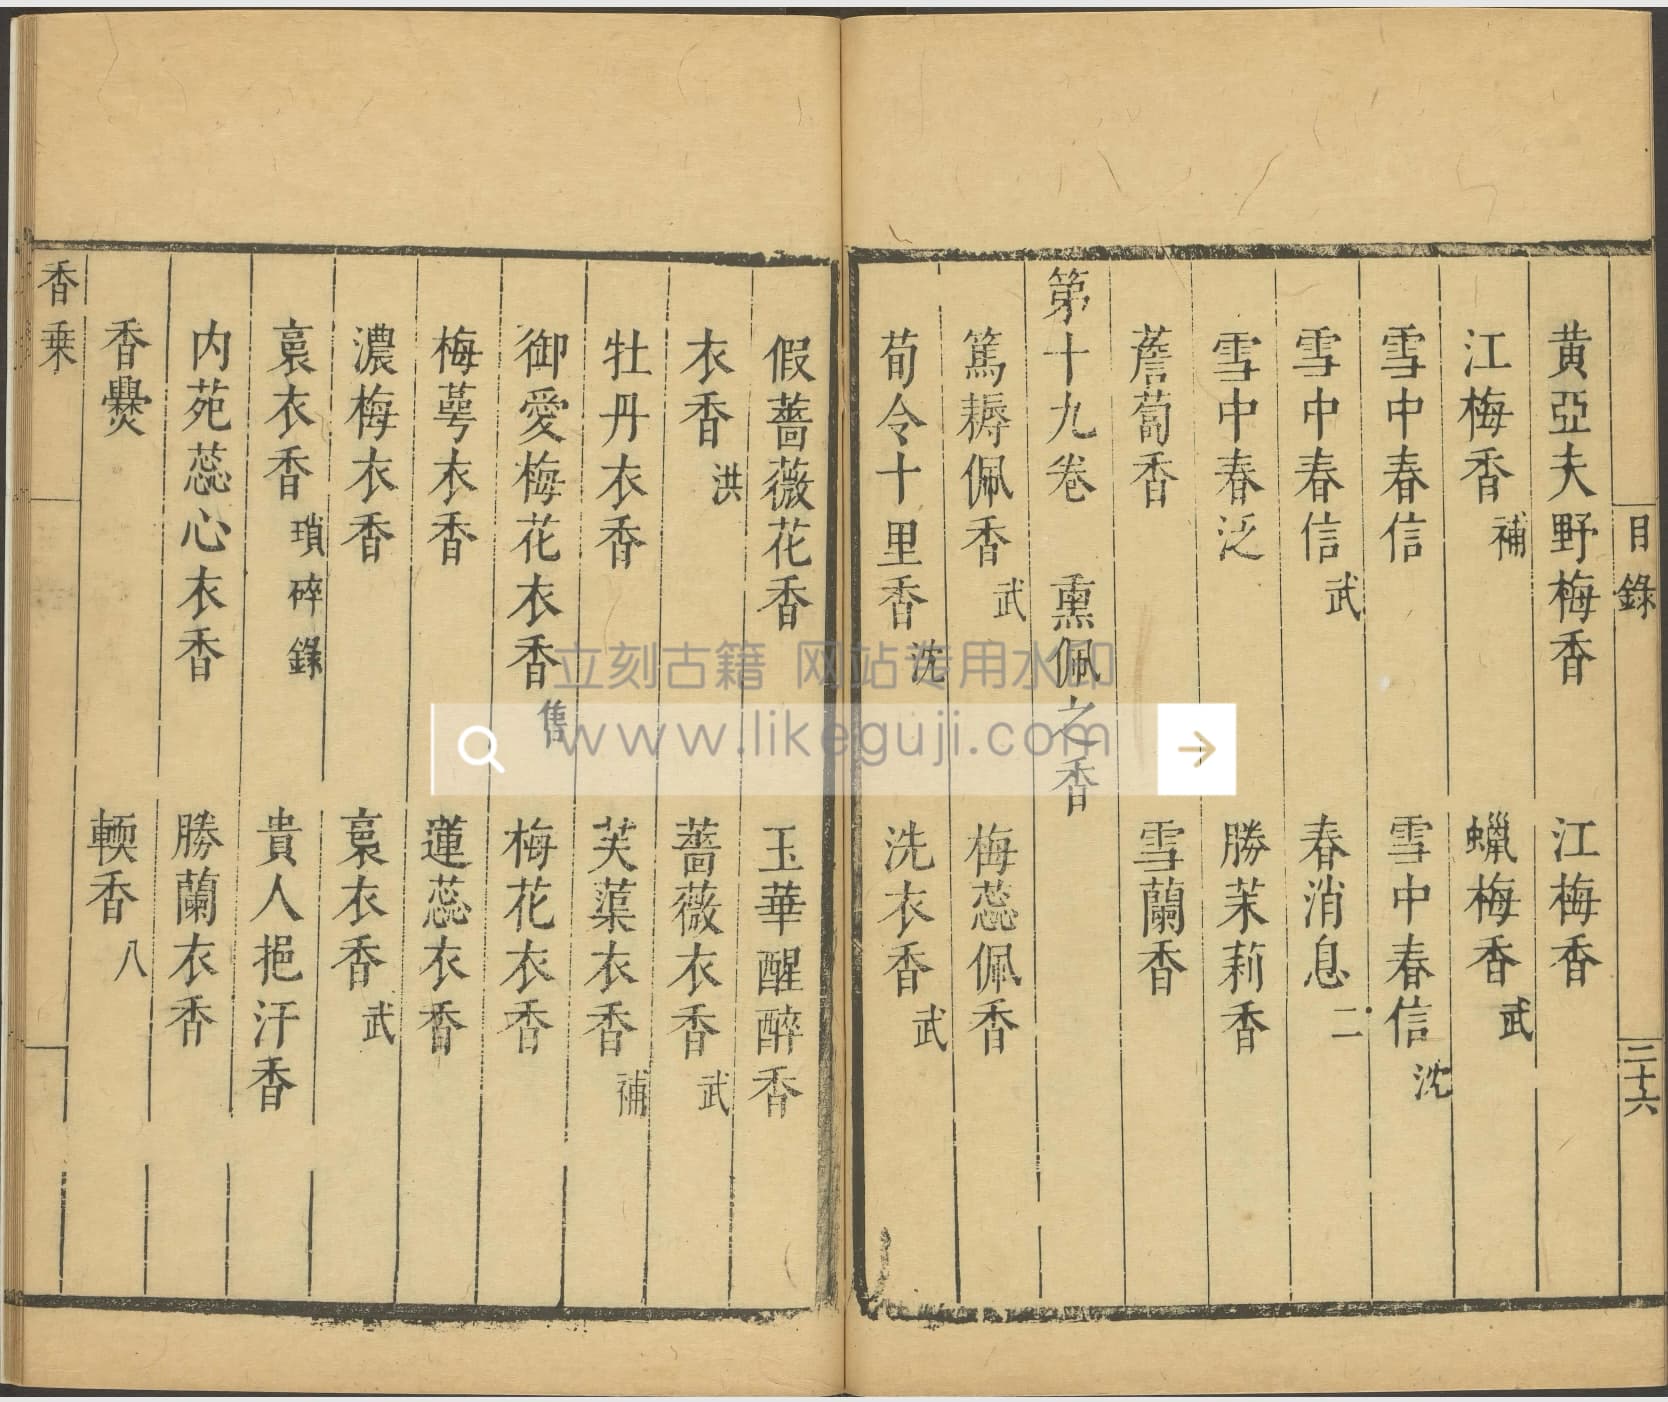 目錄
三十六
黄亞夫野梅香 江梅香
江梅香 補 蠟梅香 武
雪中春信 雪中春信 沈
雪中春信 武 春消息 二
雪中春泛 勝茉莉香
薝蔔香 雪蘭香
第十九卷 熏佩之香
篤耨佩香 武 梅蕊佩香
荀令十里香 沈 洗衣香 武
假薔薇花香 玉華醒醉香
衣香 洪 薔薇衣香 武
牡丹衣香 芙蕖衣香 補
御愛梅花衣香 售 梅花衣香
梅萼衣香 蓮蕊衣香
濃梅衣香 裛衣香 武
裛衣香 瑣碎錄 貴人挹汗香
内苑蕊心衣香 勝蘭衣香
香爨 輭香 八
香乗
立刻古籍 网站专用水印
www.likeguji.com